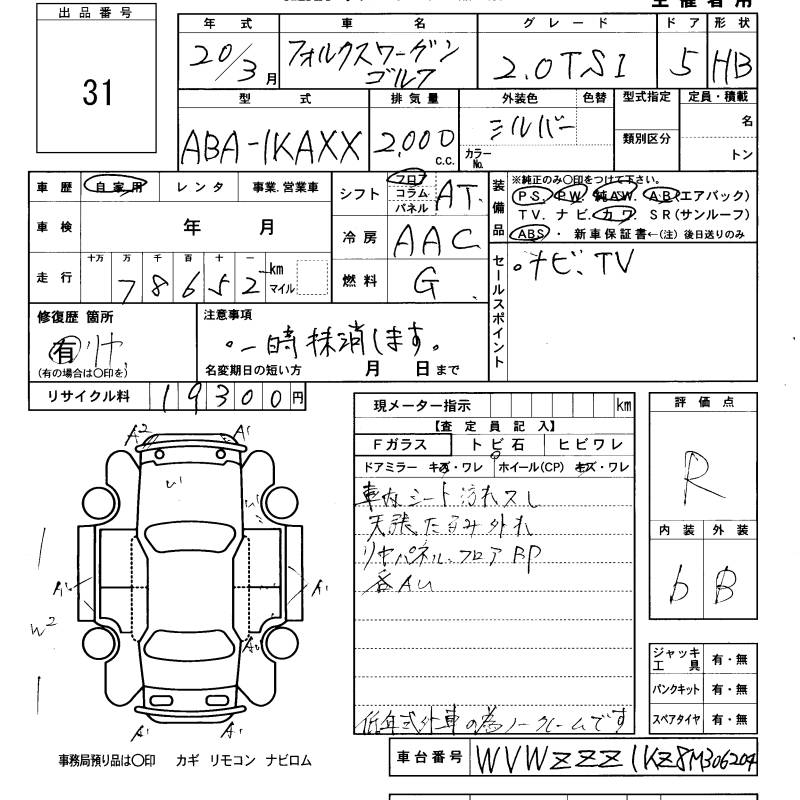 主催者用
出品番号
31
年式 車名 グレード ドア 形状
20/3月 フォルクスワーゲン ゴルフ 2.0TSI 5 HB
型式 排気量 外装色 色替 型式指定 定員・積載
ABA-1KAXX 2,000 C.C. シルバー カラーNo. 類別区分 名
トン
車歴 自家用 レンタ 事業.営業車
車検 年 月
走行 十万 万 千 百 十 一 km マイル
78652
シフト フロア コラム パネル AT.
冷房 AAC
燃料 G
装備品 ※純正のみ〇印をつけて下さい。
PS. PW. 純AW. AB(エアバック)
TV. ナビ. カワ. SR(サンルーフ)
ABS ・ 新車保証書←(注) 後日送りのみ
セールスポイント
。ナビ、TV
修復歴 箇所
有 リヤ
(有の場合は〇印を)
注意事項
。一時抹消します。
名変期日の短い方 月 日まで
リサイクル料 19300円
現メーター指示 km
【査定員記入】
Fガラス トビ石 ヒビワレ
ドアミラー キズ・ワレ ホイール(CP) キズ・ワレ
車内シート汚れスレ
天張たるみ外れ
リヤパネル、フロアBP
各AU
低年式外車の為ノークレームです
評価点
R
内装 外装
b B
ジャッキ 工具 有・無
パンクキット 有・無
スペアタイヤ 有・無
A2 A1
U1 U1
A1 A1
W2
A1 A1
事務局預り品は〇印 カギ リモコン ナビロム
車台番号 WVWZZZ1KZ8M306204